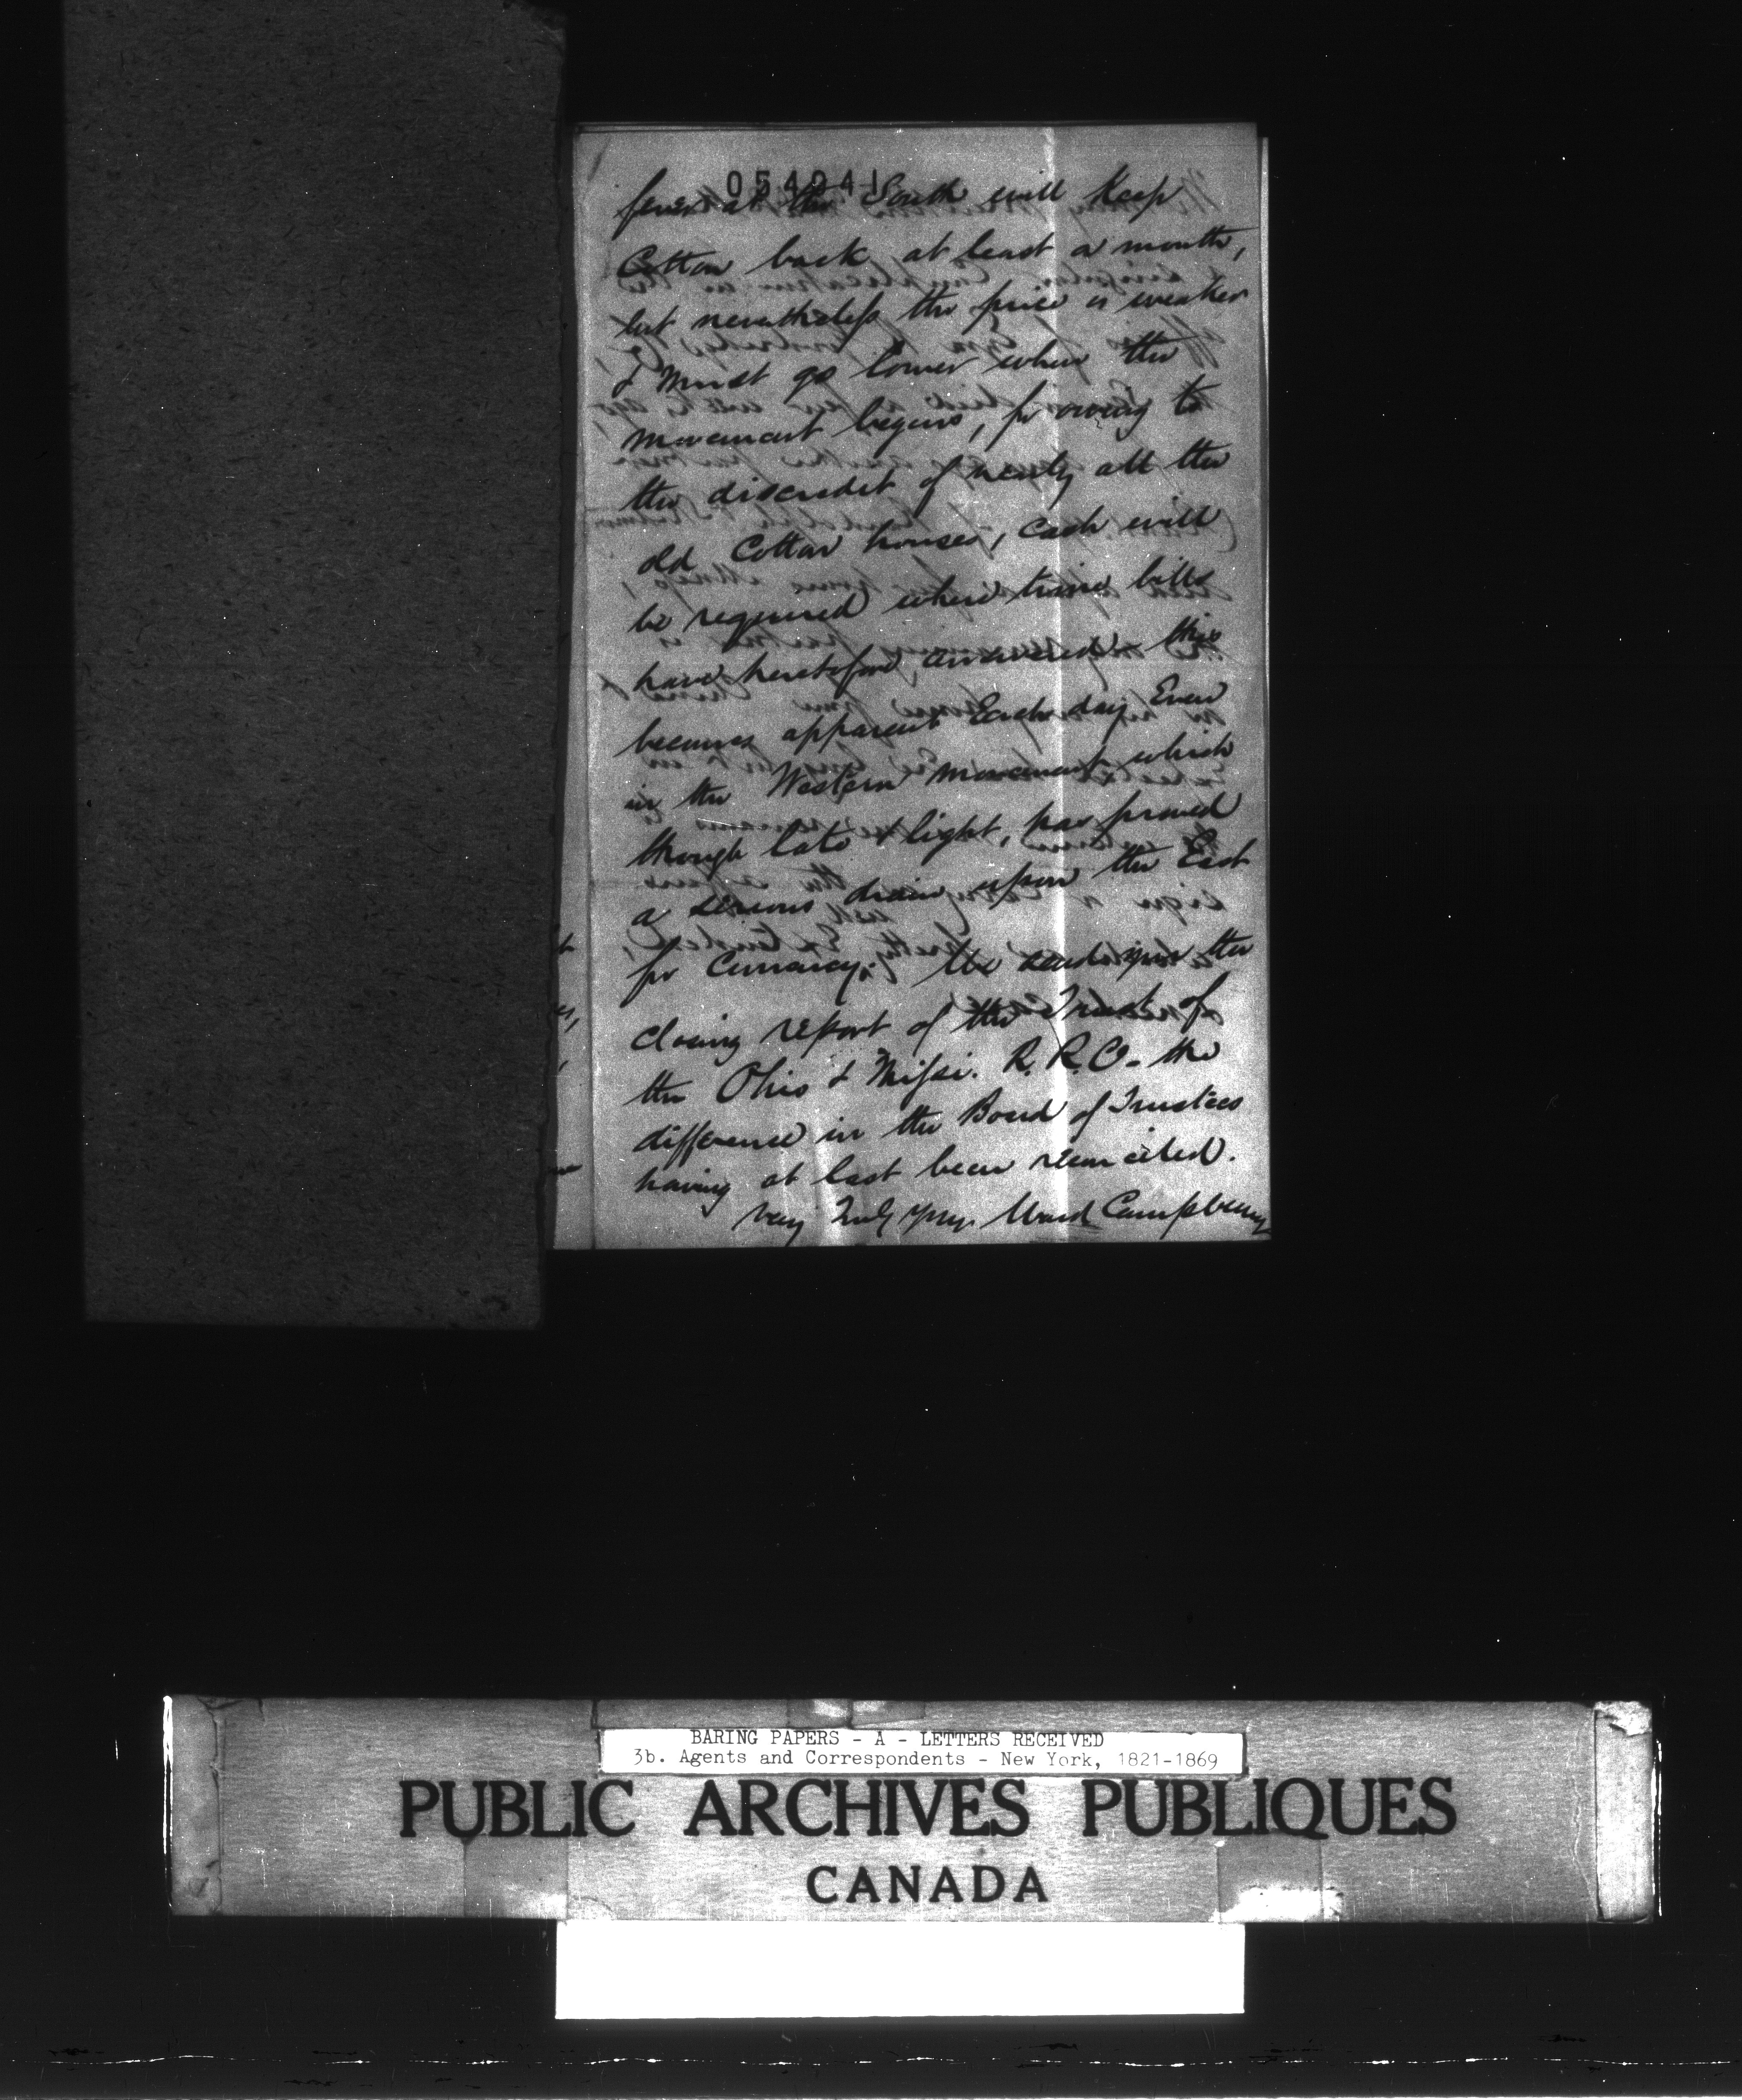 054041
fever at the South will keep
Cotton back at least a month,
but nevertheless the price is weaker
& must go lower when the
movement begins, for owing to
the discredit of nearly all the
old Cotton houses, cash will
be required where time bills
have heretofore answered - this
becomes apparent Each day Even
in the Western movement which
though late & light, has proved
a serious drain upon the East
for Currency. We send you the
closing report of the Trust of
the Ohio & Missi. R. R. Co - the
difference in the Board of Trustees
having at last been reconciled.
Very Truly yrs. Ward Campbell
BARING PAPERS - A - LETTERS RECEIVED
3b. Agents and Correspondents - New York, 1821-1869
PUBLIC ARCHIVES PUBLIQUES
CANADA